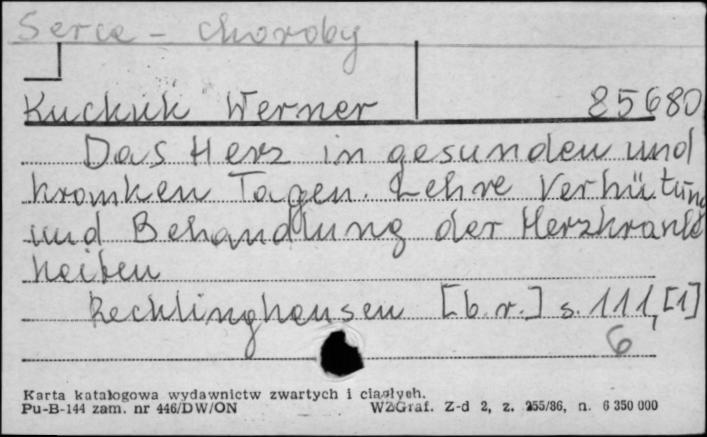 Serce - choroby
Kuckuk Werner 85680
Das Herz in gesunden und
kranken Tagen. Lehre Verhütung
und Behandlung der Herzkrank
heiten
Recklinghausen [b.r.] s. 111, [1]
6
Karta katalogowa wydawnictw zwartych i ciągłych.
Pu-B-144 zam. nr 446/DW/ON WZGraf. Z-d 2, z. 255/86, n. 6 350 000